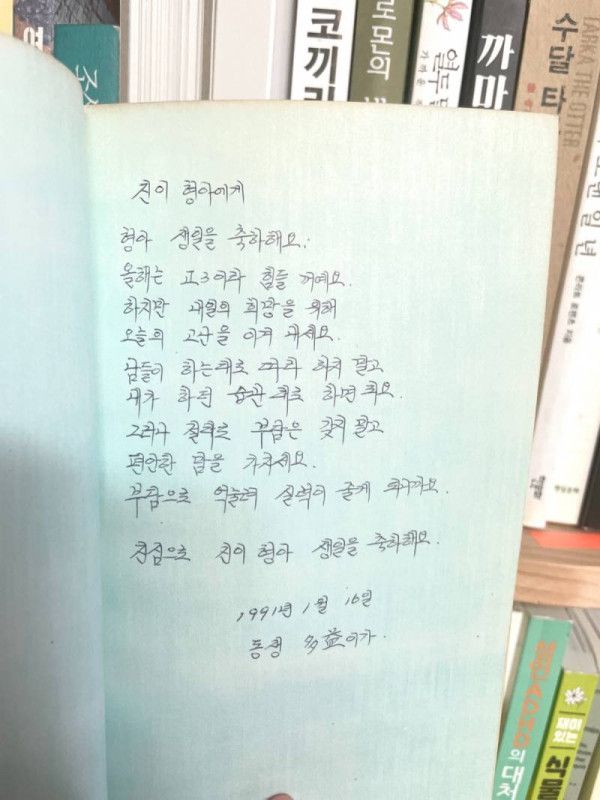 코끼리
로몬의
열두
까마
수달 타
TARKA THE OTTER
진이 형아에게
형아 생일을 축하해요.
올해는 고3이라 힘들 꺼예요.
하지만 내일의 희망을 위해
오늘의 고난을 이겨 내세요.
남들이 하는대로 따라 하지 말고
내가 하던 습관 대로 하면 되요.
그리고 절대로 부담은 갖지 말고
편안한 맘을 가지세요.
부담으로 억눌려 실력이 줄게 되니까요.
진심으로 진이 형아 생일을 축하해요.
1991년 1월 16일
동생 多益이가.
ADHD의 대처
재미있는
식물